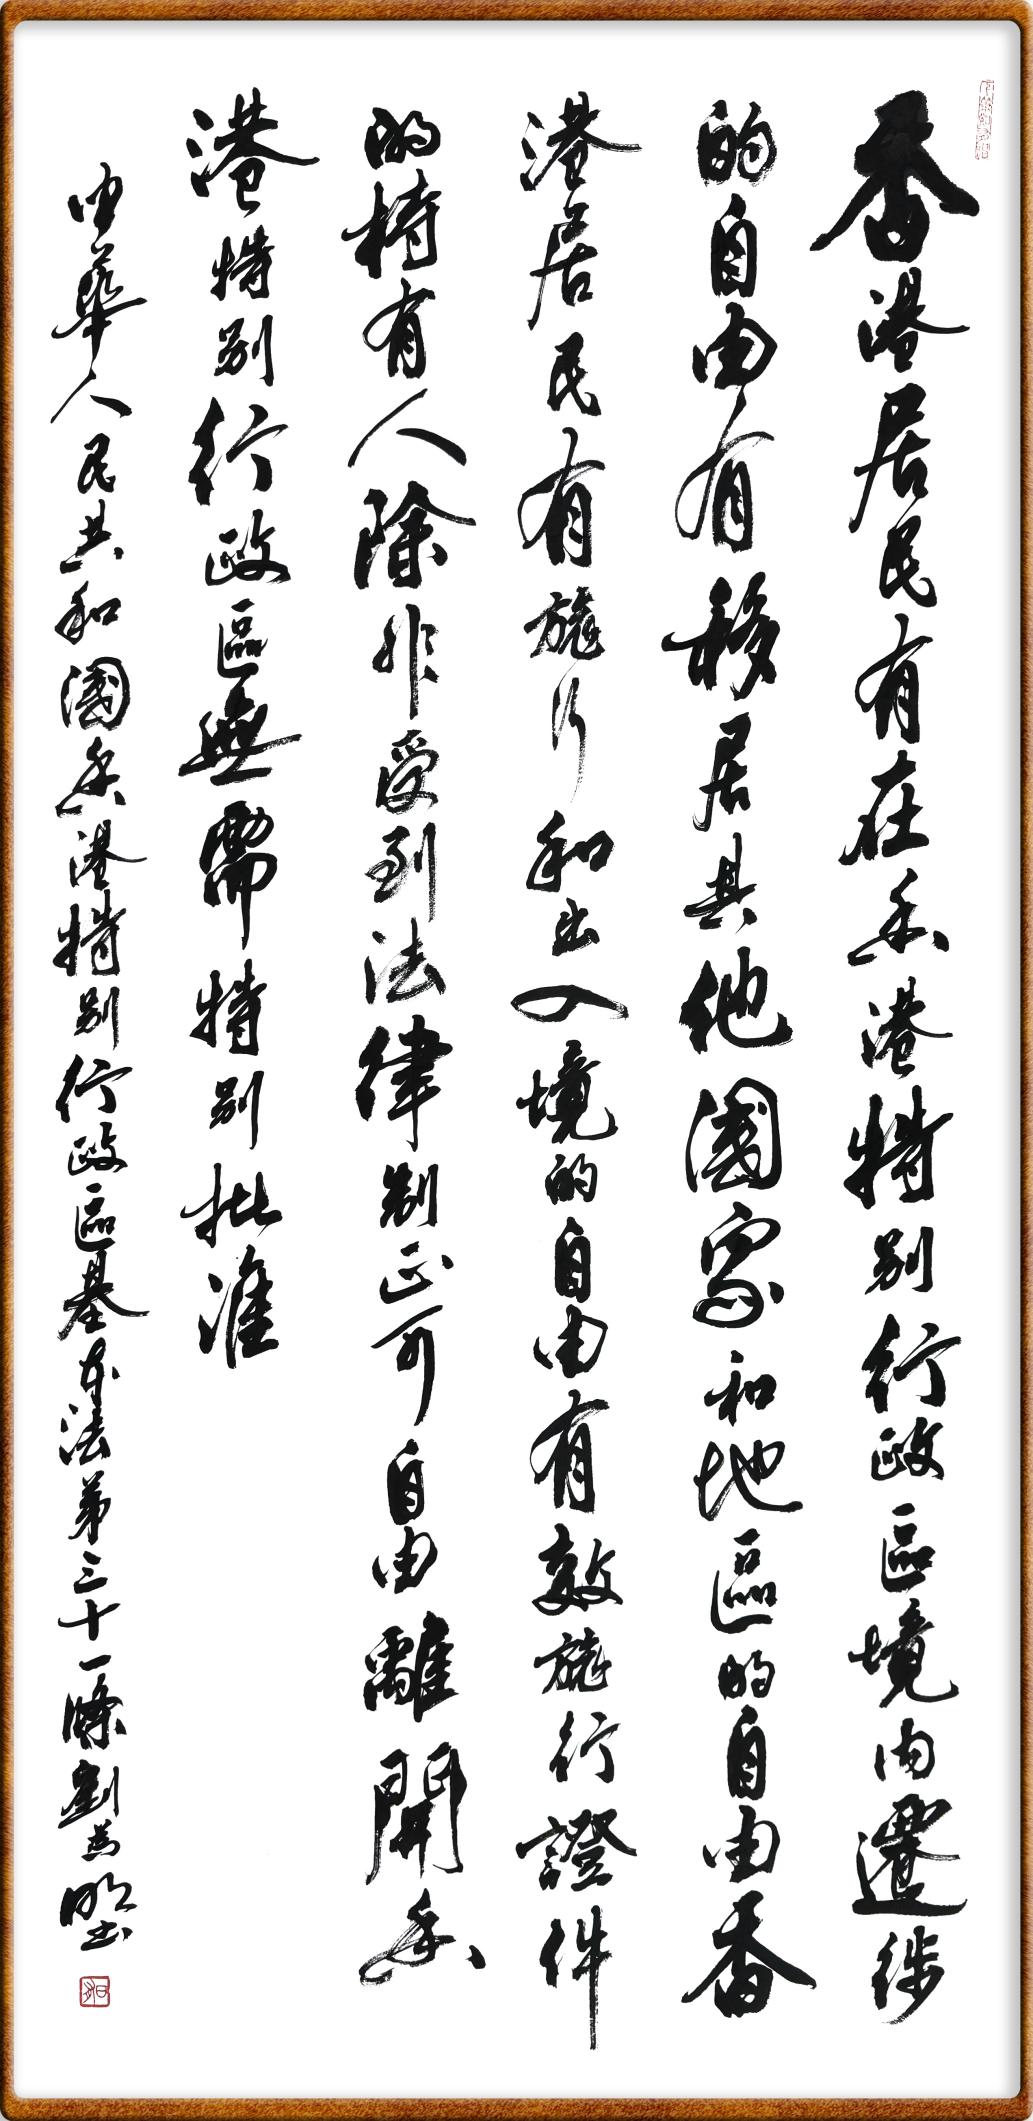 香港居民有在香港特別行政區境內遷徙
的自由有移居其他國家和地區的自由香
港居民有旅行和出入境的自由有效旅行證件
的持有人除非受到法律制止可自由離開香
港特別行政區無需特別批准
中華人民共和國香港特別行政區基本法第三十一條劉為明书